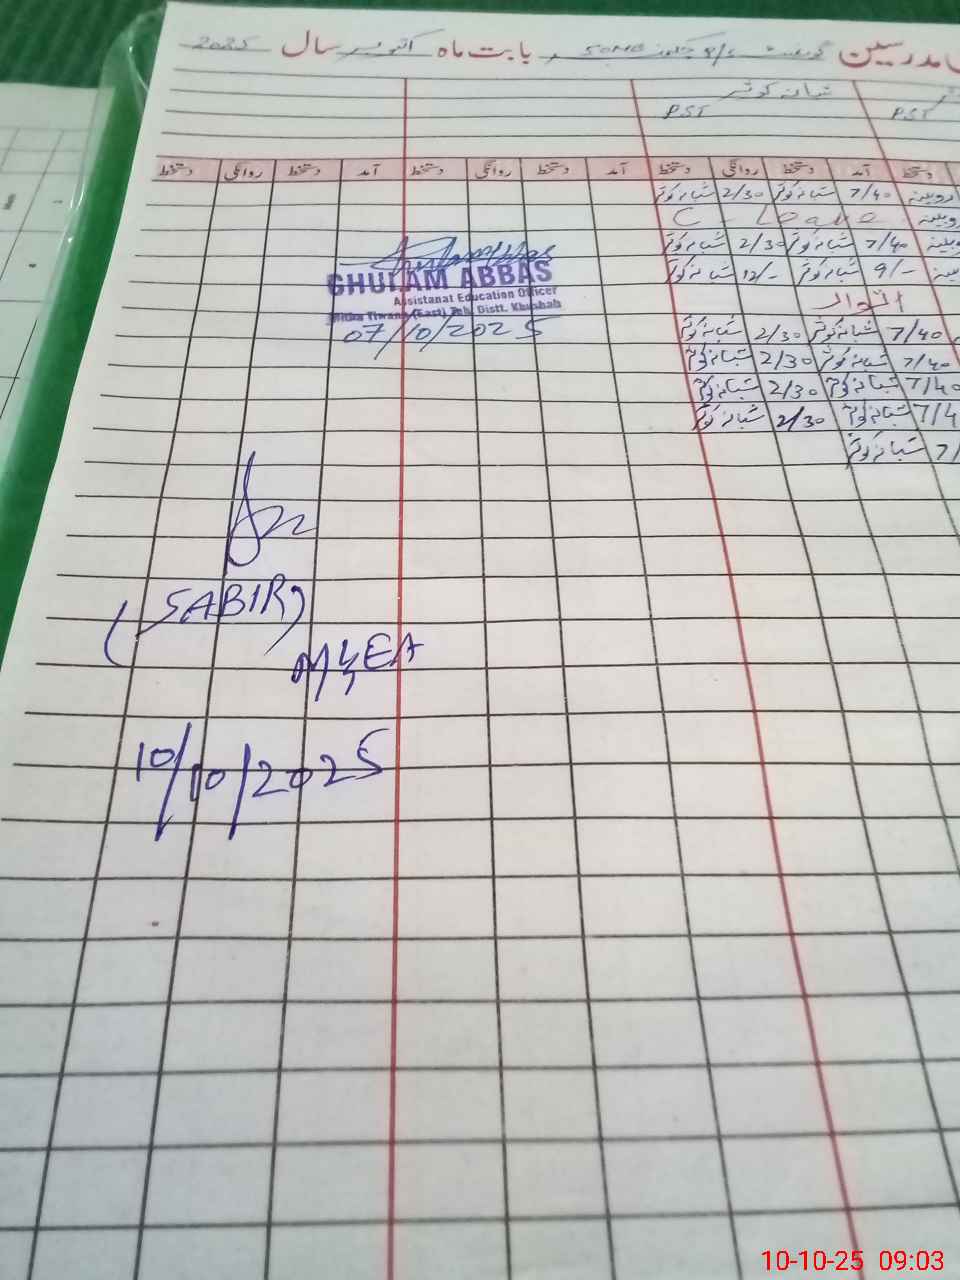 مدرسین گورنمنٹ بابت ماہ اکتوبر سال 2025
شبانہ کوثر
PST PST
دستخط آمد دستخط روانگی دستخط آمد دستخط روانگی دستخط آمد دستخط روانگی دستخط
روبینہ 7/40 شبانہ کوثر 2/30 شبانہ کوثر
روبینہ C - Leave
7/40 شبانہ کوثر 2/30 شبانہ کوثر
9/- شبانہ کوثر 12/- شبانہ کوثر
اتوار
7/40 شبانہ کوثر 2/30 شبانہ کوثر
7/40 شبانہ کوثر 2/30 شبانہ کوثر
7/40 شبانہ کوثر 2/30 شبانہ کوثر
7/4 شبانہ کوثر 2/30 شبانہ کوثر
7/ شبانہ کوثر
GHULAM ABBAS
Assistanat Education Officer
Mitha Tiwana (East) Teh. Distt. Khushab
07/10/2025
(SABIR)
MEA
10/10/2025
10-10-25 09:03